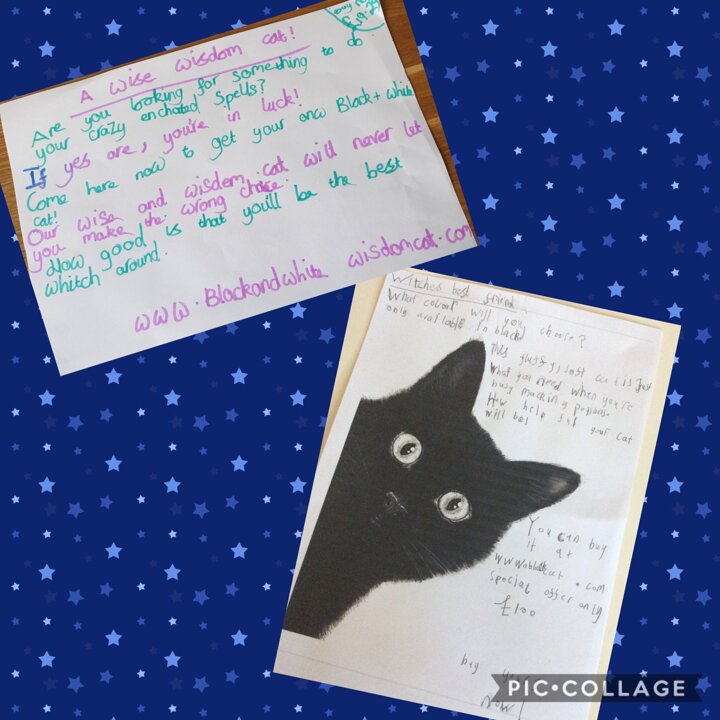 A wise wisdom cat!
Are you looking for something to do
your crazy enchated spells?
If yes are, you're in luck!
Come here now to get your onw Black + white
cat!
Our wise and wisdem cat will never let
you make the wrong choice.
How good is that you'll be the best
whitch around.
www.Blackandwhite wisdomcat.com
buy now
Witches best friend
What colour will you choose?
only available in black
This cat is just
what you need when you're
busy macking potions
How help ful your cat
will be!
You can buy
it at
cat.com
special offer only
£100
buy
now!
PIC•COLLAGE